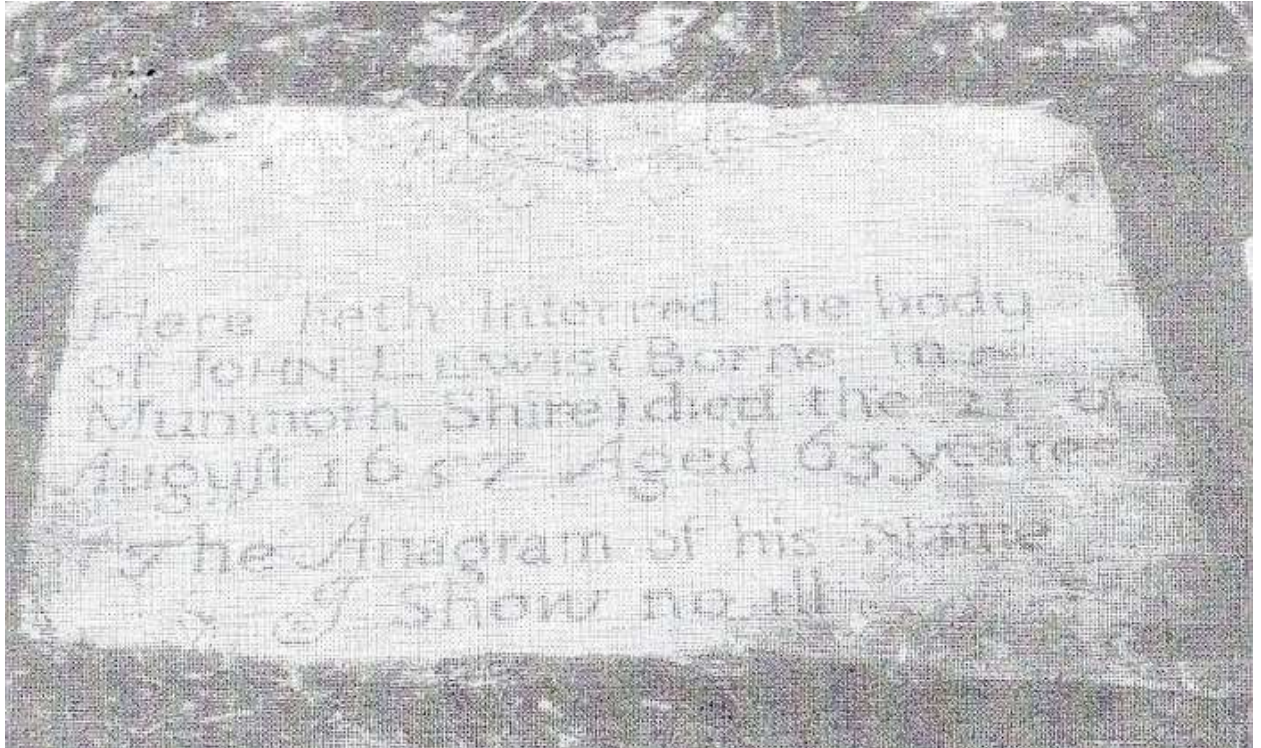 Here lieth Interred the body
of JOHN LEWIS (Borne in
Munmoth Shire) died the 21 of
Auguſt 1657 Aged 63 yeares
The Anagram of his Name
I Show no ill